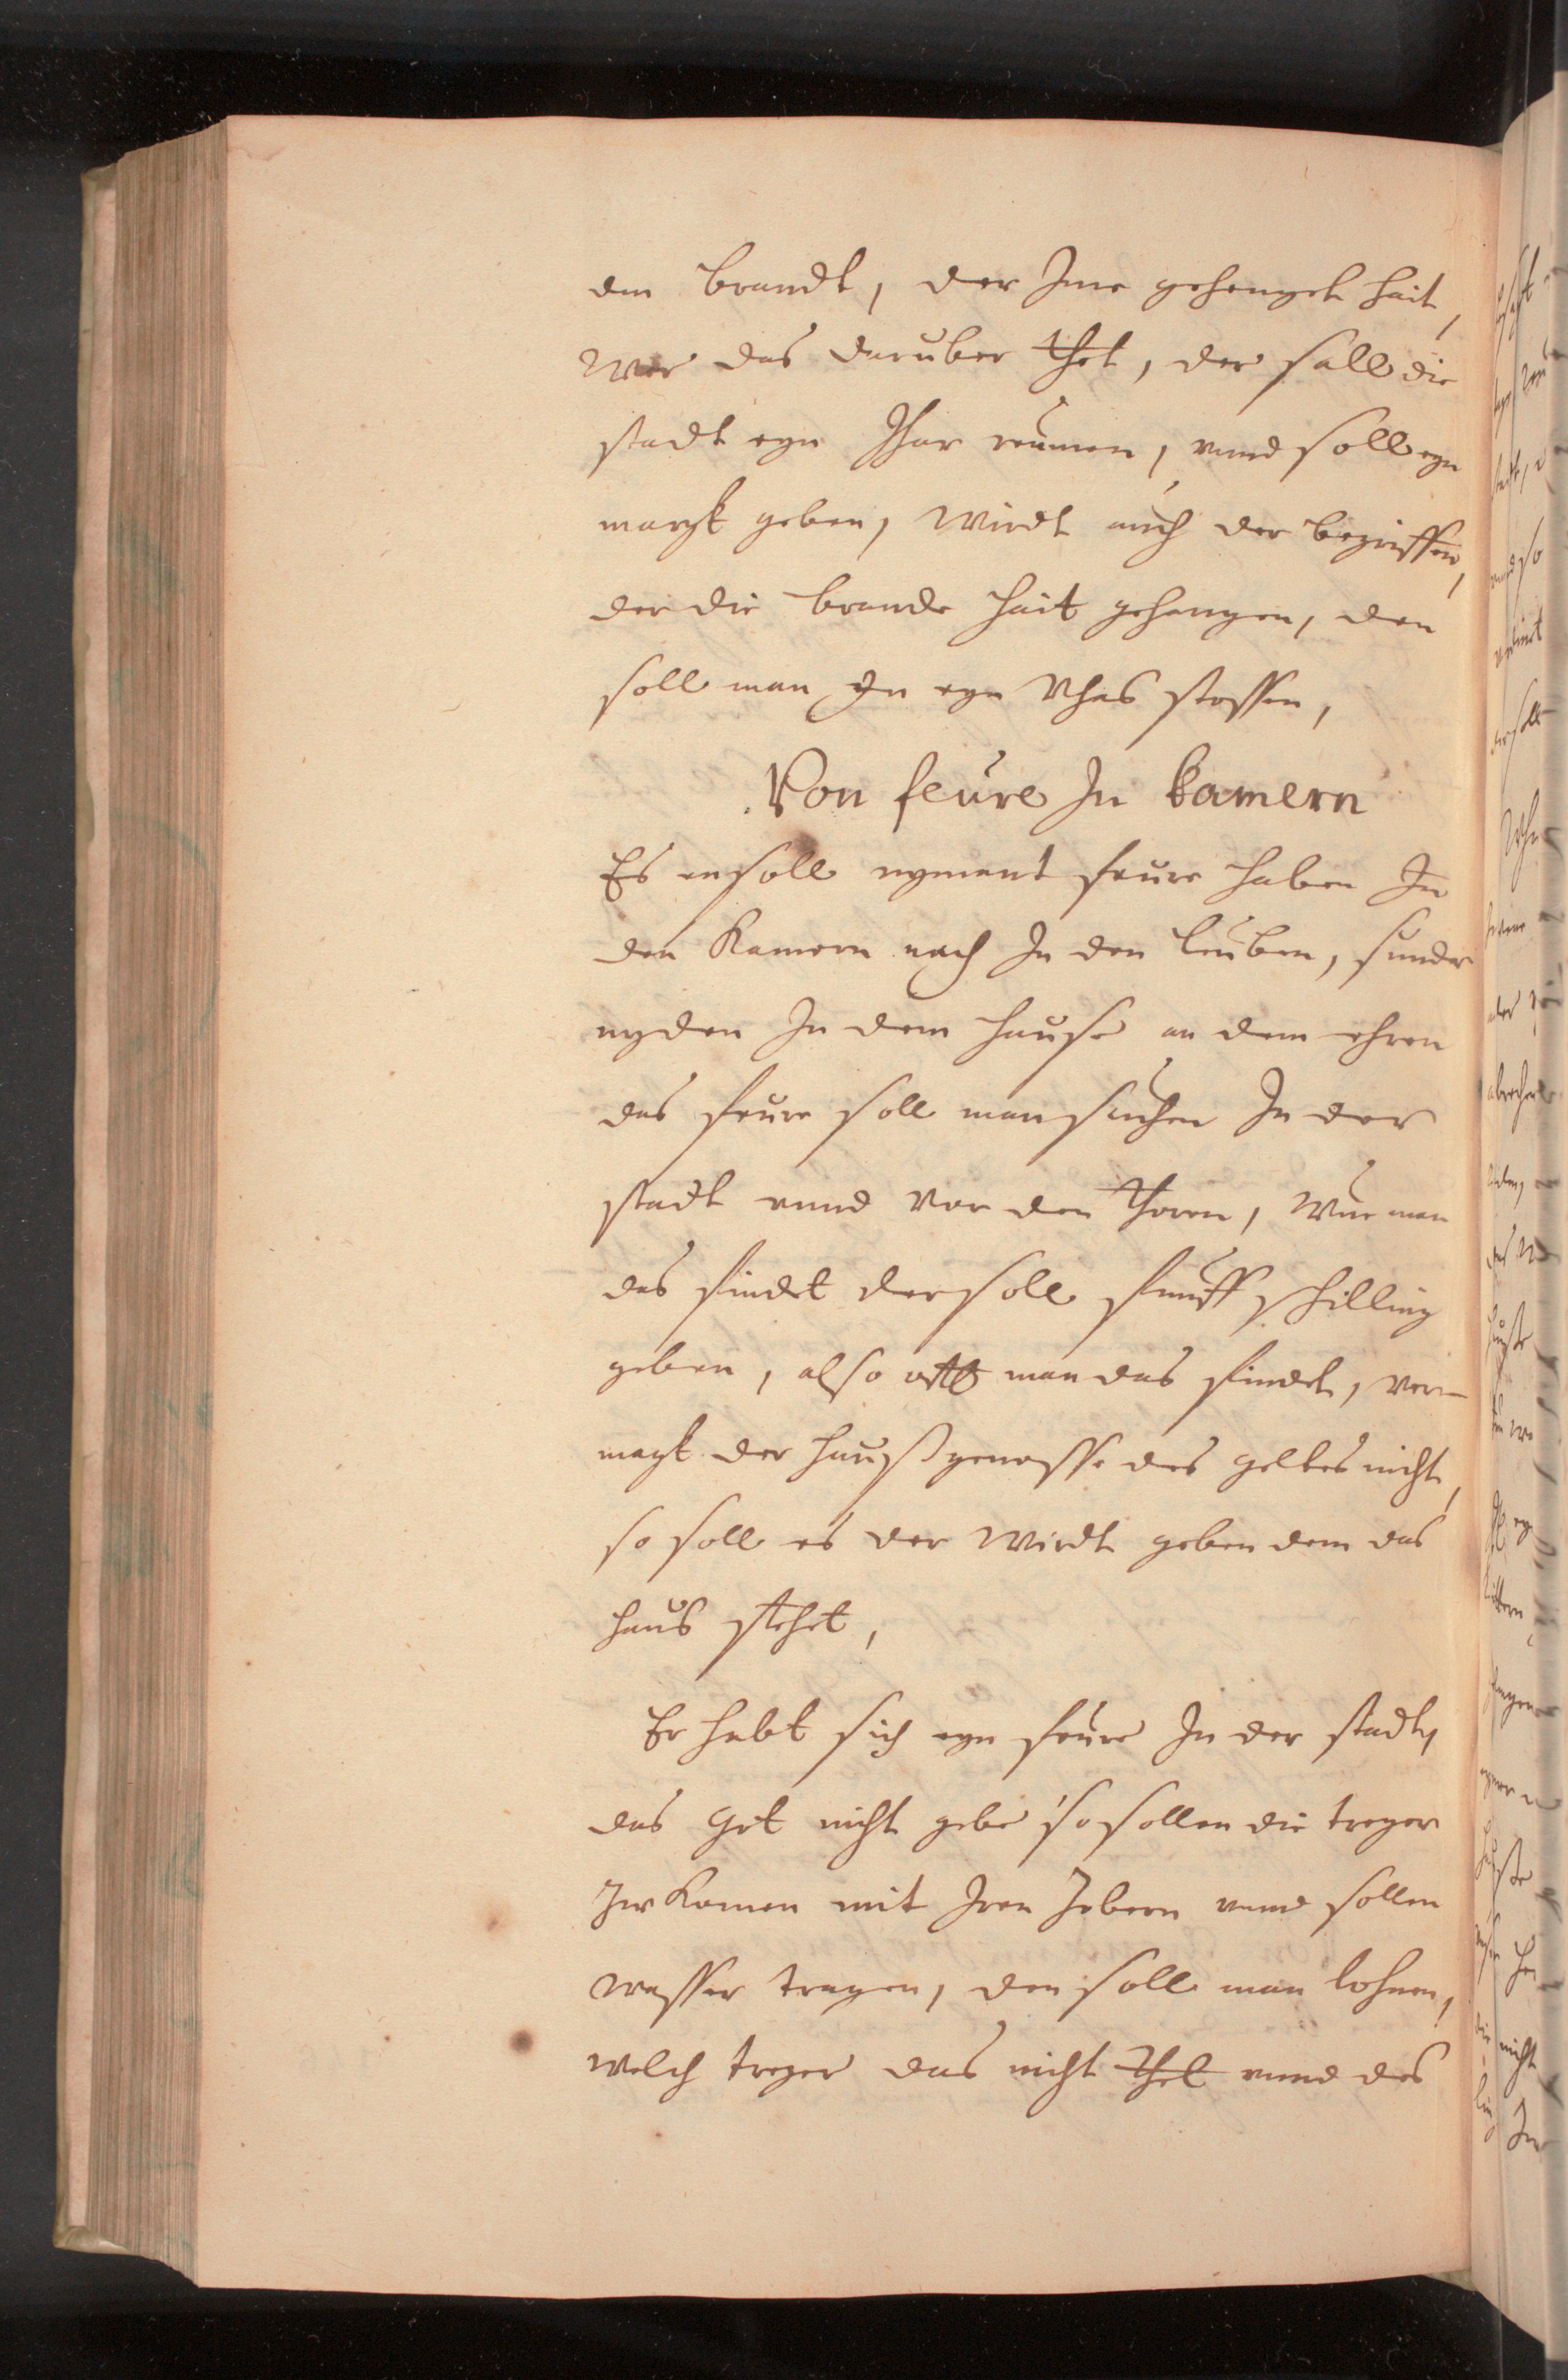 den brandt, der Ime gehengek hait,
Wer das daruber thet, der sall die
stadt eyn Jhar reumen, vnnd soll eyn
margk geben, Wirdt auch der begriffen,
der die brende hait gehangen, den
soll man In eyn Vhas stossen,
Von feure In kamern
Es ensoll nymant feure haben In
den Kamern nach In den leuben, sunder
nyden In dem hause an dem ehren
das feure soll man suchen In der
stadt vnnd vor den thoren, Wue man
das findet der soll funff schilling
geben, also offt man das findet, ver-
magk der haußgenosse des geltes nicht,
so soll es der Wirdt geben dem das
haus stehet,
Er hebt sich eyn feure In der stadt,
das Got nicht gebe so sollen die treger
Zw Komen mit Iren Zobern vnnd sollen
wasser tragen, den soll man lohnen,
welch treger das nicht thet vnnd des